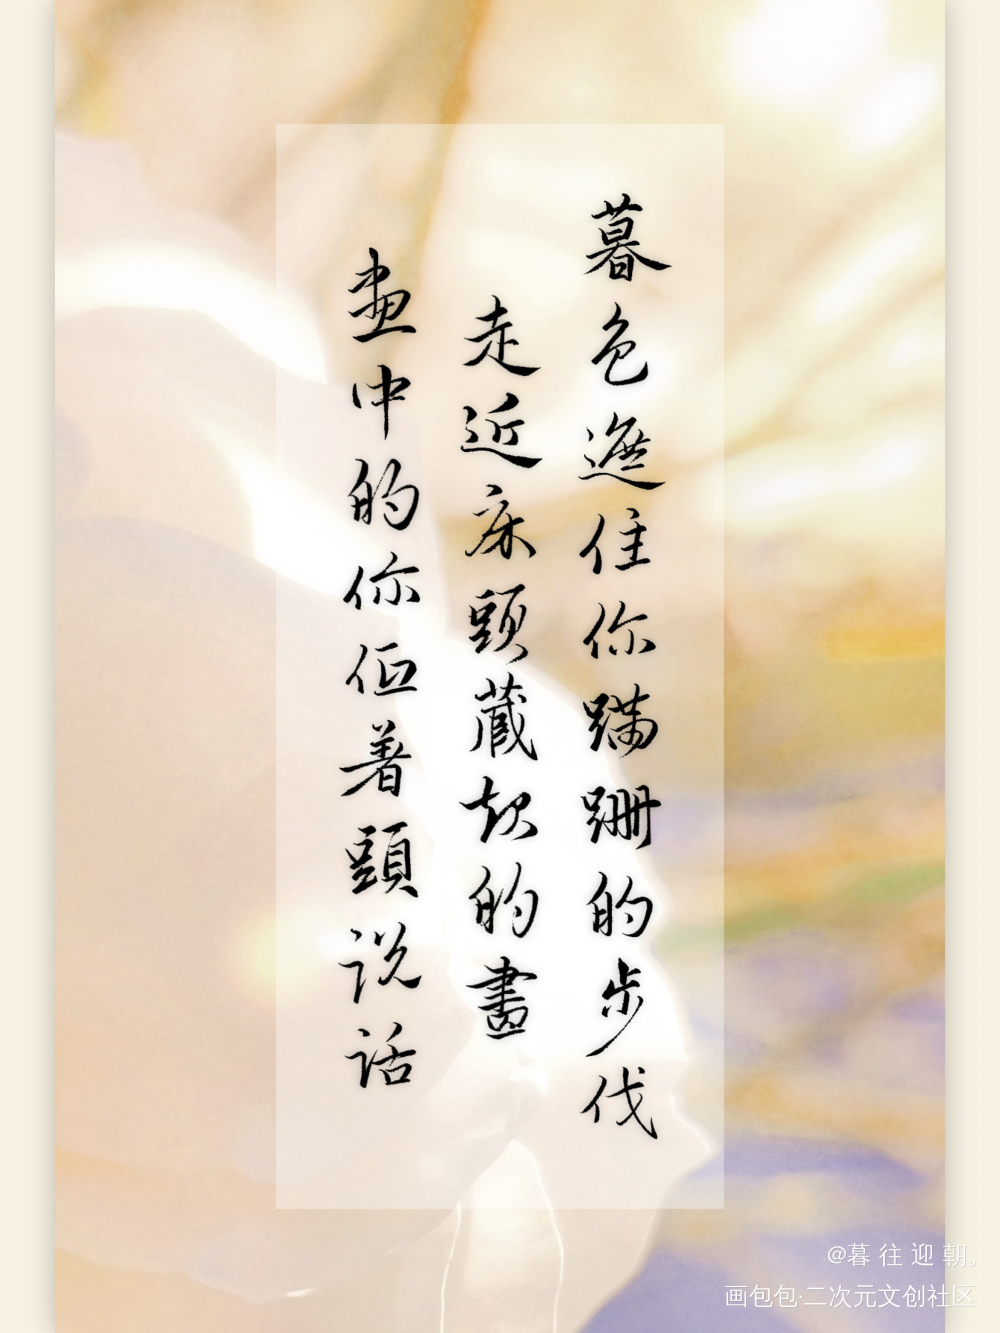 暮色遮住你蹒跚的步伐
走近床頭藏起的畫
畫中的你低著頭说话
@暮往迎朝。
画包包·二次元文创社区